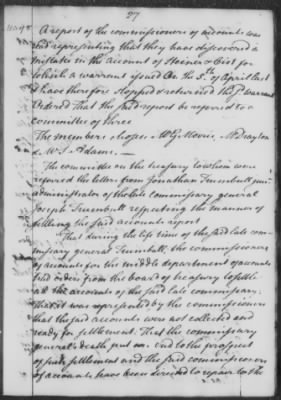 27
A report of the commissioners of accounts was
read representing that they have discovered a
mistake in the account of Hoener & Gist for
which a warrant issued on the 5th of April last
& have therefore stopped & returned the sd warrant
Ordered That the said report be referred to a
committee of three
The members chosen Mr G Morris Mr Drayton
& Mr S. Adams.
The committee on the treasury to whom were
referred the letter from Jonathan Trumbull junr
administrator of the late commissary general
Joseph Trumbull respecting the manner of
settling the said accounts report
That during the life time of the said late com
missary general Trumbull, the commissioners
of accounts for the middle department of accounts
had orders from the board of treasury to settle
all the accounts of the said late commissary.
that it was represented by the commissioners
that the said accounts were not collected and
ready for settlement. That the commissary
general's death put an end to the prospect
of such settlement and the said commissioners
of accounts have been directed to repair to the